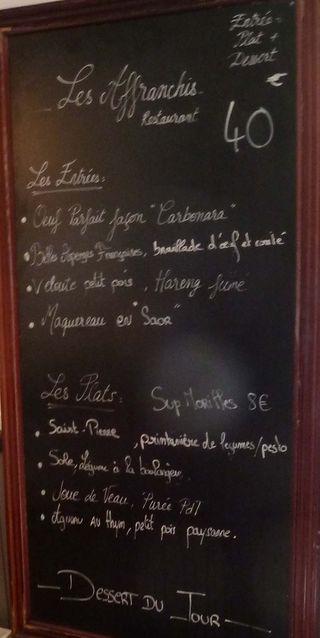 Entrée +
Plat +
Dessert
€
40
Les Affranchis
Restaurant
Les Entrées:
• Oeuf Parfait façon "Carbonara"
• Belles Asperges Françaises, brouillade d'œuf et comté
• Velouté petit pois, Hareng fumé
• Maquereau en "Saor"
Les Plats: Sup Morilles 8€
• Saint-Pierre, printanière de légumes/pesto
• Sole, à la boulangère
• Joue de Veau, Purée PdT
• Agneau au thym, petit pois paysanne.
- Dessert du Jour -